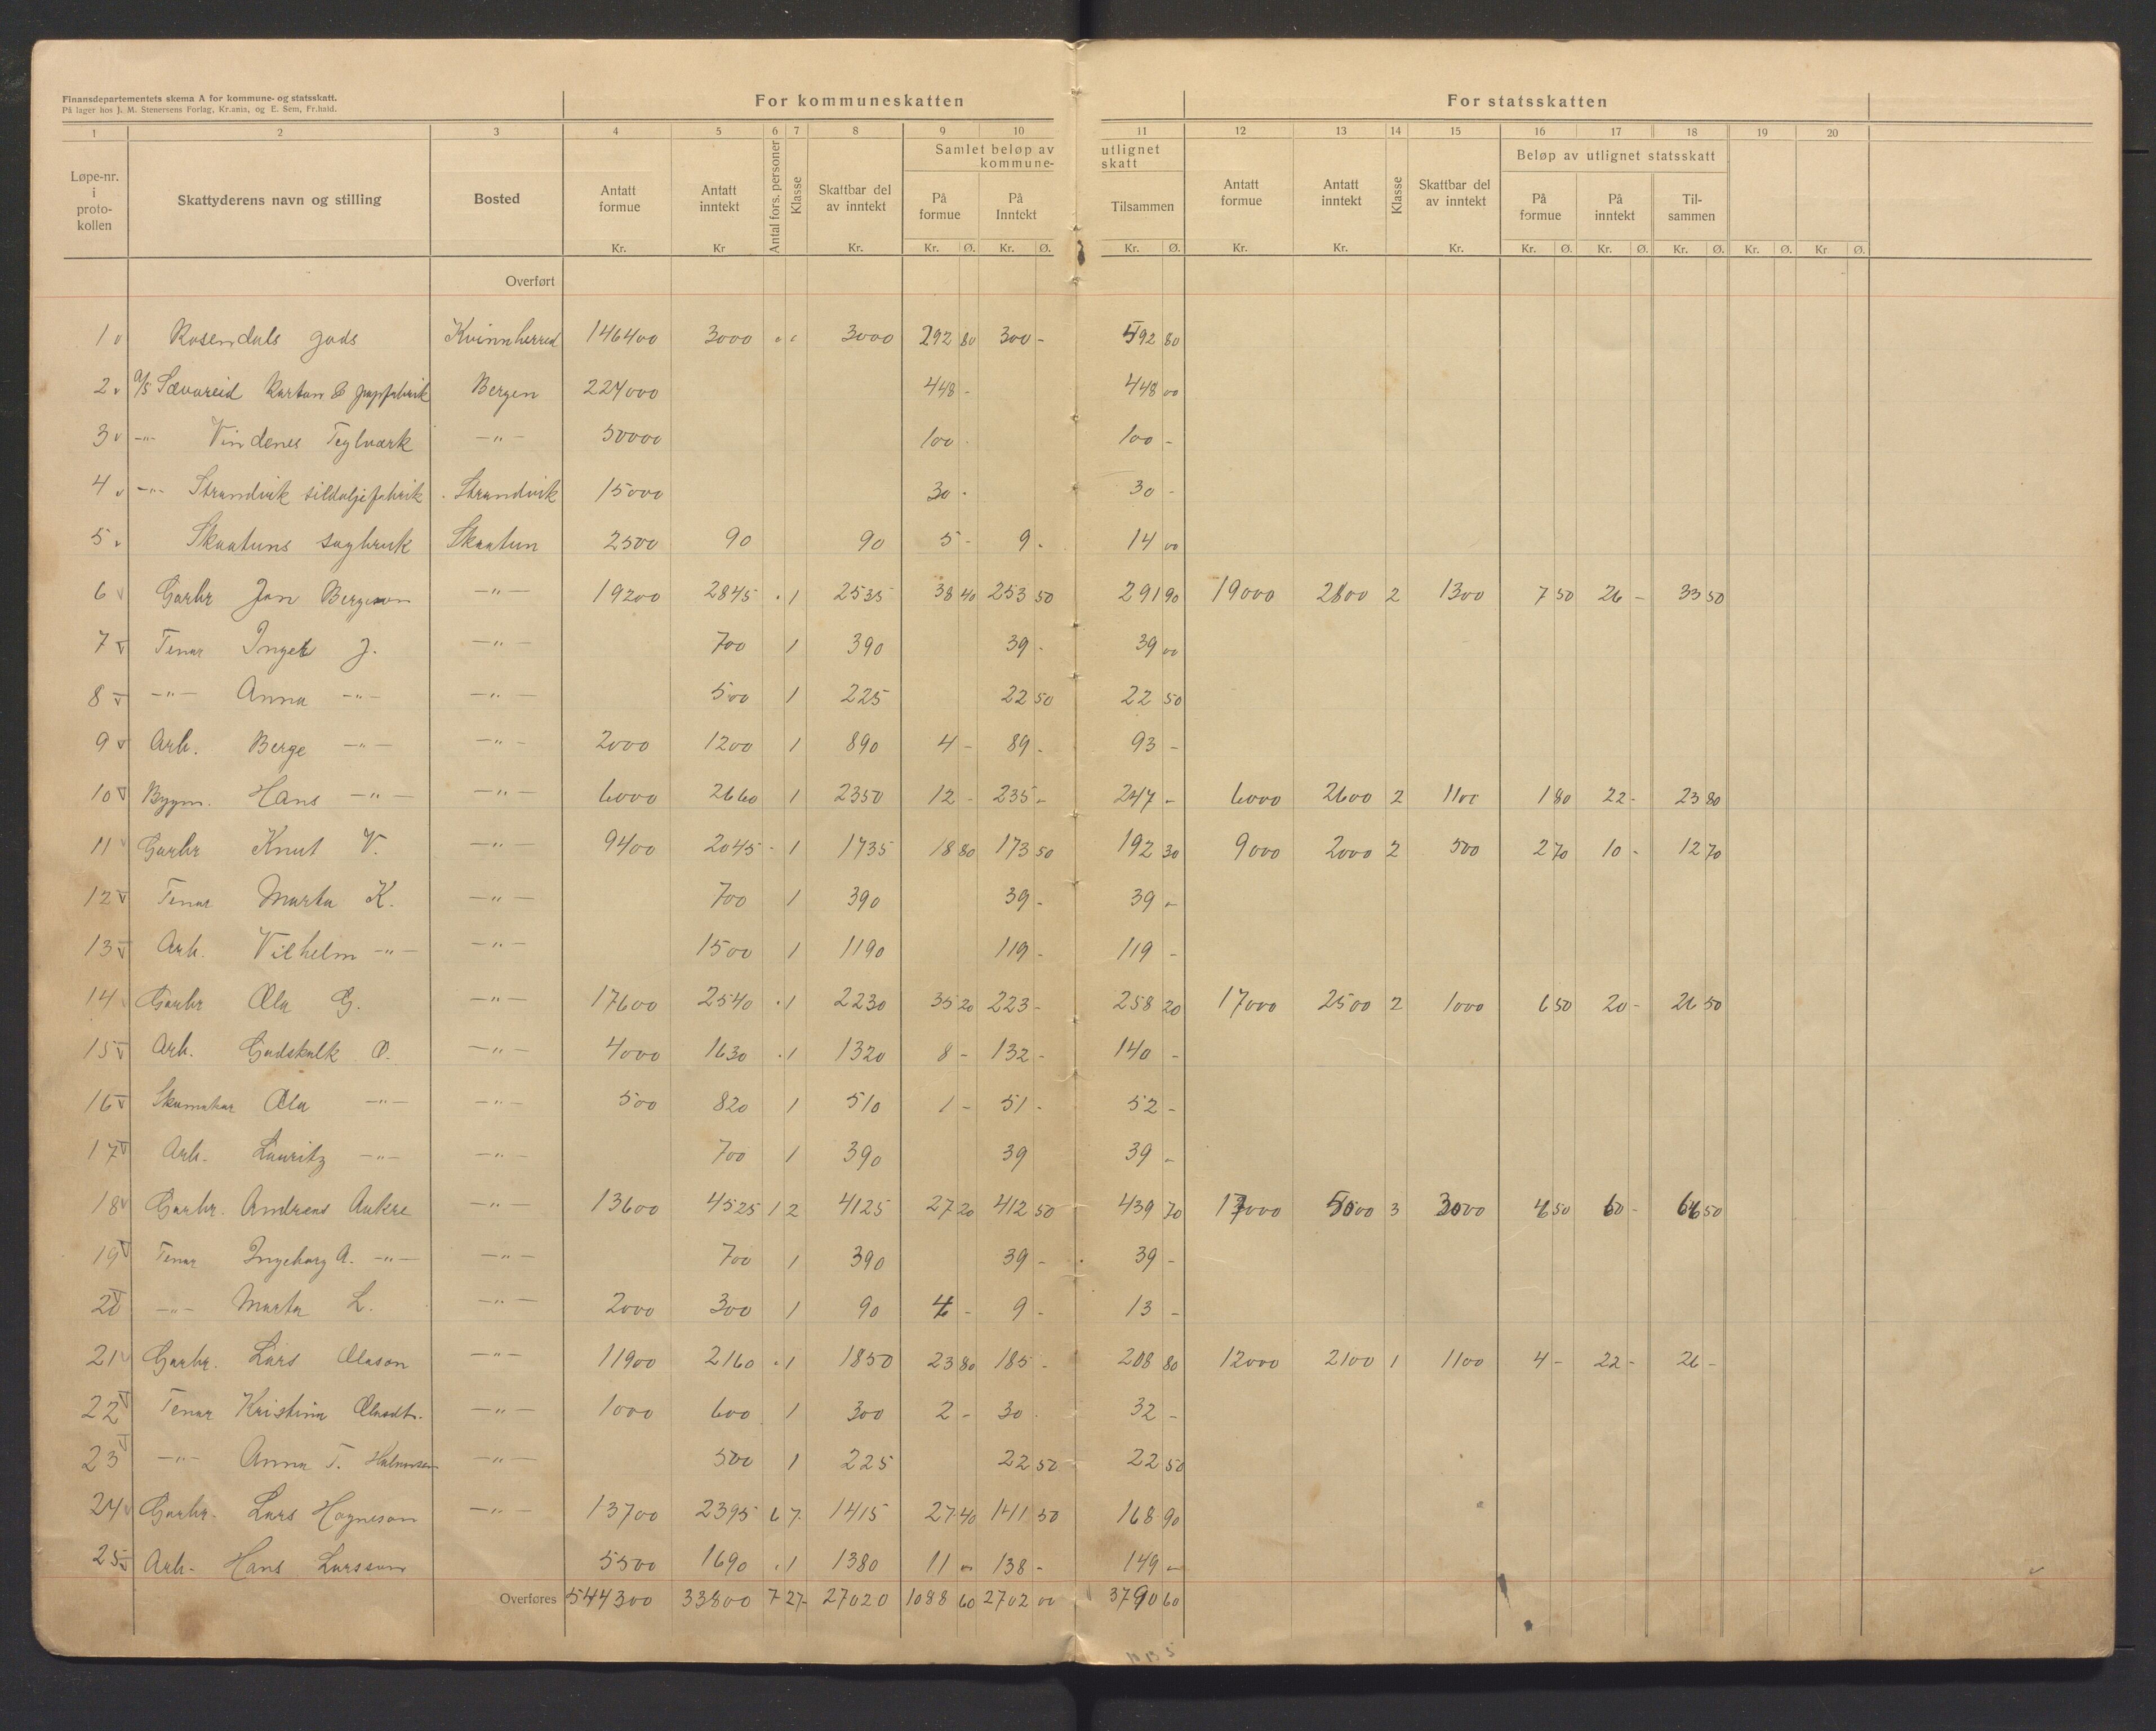 Finansdepartementets skema A for kommune- og statsskatt.
På lager hos J. M. Stenersens Forlag, Kr.ania, og E. Sem, Fr.hald.
For kommuneskatten For statsskatten
1 2 3 4 5 6 7 8 9 10 11 12 13 14 15 16 17 18 19 20
Løpe-nr. i proto-kollen Skattyderens navn og stilling Bosted Antatt formue Antatt inntekt Antal fors. personer Klasse Skattbar del av inntekt Samlet beløp av kommune- utlignet skatt På formue På Inntekt Tilsammen Antatt formue Antatt inntekt Klasse Skattbar del av inntekt Beløp av utlignet statsskatt På formue På inntekt Til-sammen
Kr. Kr Kr. Kr. Ø. Kr. Ø. Kr. Ø. Kr. Kr. Kr. Kr. Ø. Kr. Ø. Kr. Ø. Kr. Ø. Kr Ø.
Overført
1 v Rosendals gods Kvinnherred 146400 3000 3000 292 80 300 - 592 80
2 v A/S Sævareid Karton & papfabrik Bergen 224000 448 - 448 00
3 v -"- Vindenes Teglværk -"- 50000 100 - 100 -
4 v -"- Strandvik sildoljefabrik Strandvik 15000 30 - 30 -
5 v Skaatuns sagbruk Skaatun 2500 90 90 5 - 9 - 14 00
6 v Garbr Jon Bergeson -"- 19200 2845 . 1 2535 38 40 253 50 291 90 19000 2800 2 1300 7 50 26 - 33 50
7 v Tenar J. -"- 700 1 390 39 - 39 00
8 v -"- Anna -"- -"- 500 1 225 22 50 22 50
9 v Arb. Berge -"- -"- 2000 1200 1 890 4 - 89 - 93 -
10 v Bygm. Hans -"- -"- 6000 2660 1 2350 12 - 235 - 247 - 6000 2600 2 1100 1 80 22 - 23 80
11 v Garbr Knut V. -"- 9400 2045 - 1 1735 18 80 173 50 192 30 9000 2000 2 500 2 70 10 - 12 70
12 v Tenar Marta K. -"- 700 1 390 39 - 39 -
13 v Arb. Vilhelm -"- -"- 1500 1 1190 119 - 119 -
14 v Garbr Ola G. -"- 17600 2540 . 1 2230 35 20 223 - 258 20 17000 2500 2 1000 6 50 20 - 26 50
15 v Arb. Gudskalk O. -"- 4000 1630 . 1 1320 8 - 132 - 140 -
16 v Skomakar Ola -"- -"- 500 820 1 510 1 - 51 - 52 -
17 v Arb. Lauritz -"- -"- 700 1 390 39 39 -
18 v Garbr. Andreas Aakre -"- 13600 4525 1 2 4125 27 20 412 50 439 70 5000 3 3000 4 50 60 - 50
19 v Tenar Ingeborg A. -"- -"- 700 1 390 39 - 39 -
20 v -"- Marta L. -"- 2000 300 1 90 4 - 9 - 13 -
21 v Garbr. Lars Olason -"- 11900 2160 . 1 1850 23 80 185 - 208 80 12000 2100 1 1100 4 - 22 - 26 -
22 v Tenar Kristina Olasdt. -"- 1000 600 1 300 2 - 30 - 32 -
23 v -"- Anna T. -"- 500 1 225 22 50 22 50
24 v Garbr. Lars Hogneson -"- 13700 2395 6 7 1415 27 40 141 50 168 90
25 v Arb. Hans Larsson 5500 1690 . 1 1380 11 - 138 - 149 -
Overføres 544300 33800 7 27 27020 1088 60 2702 00 3790 60